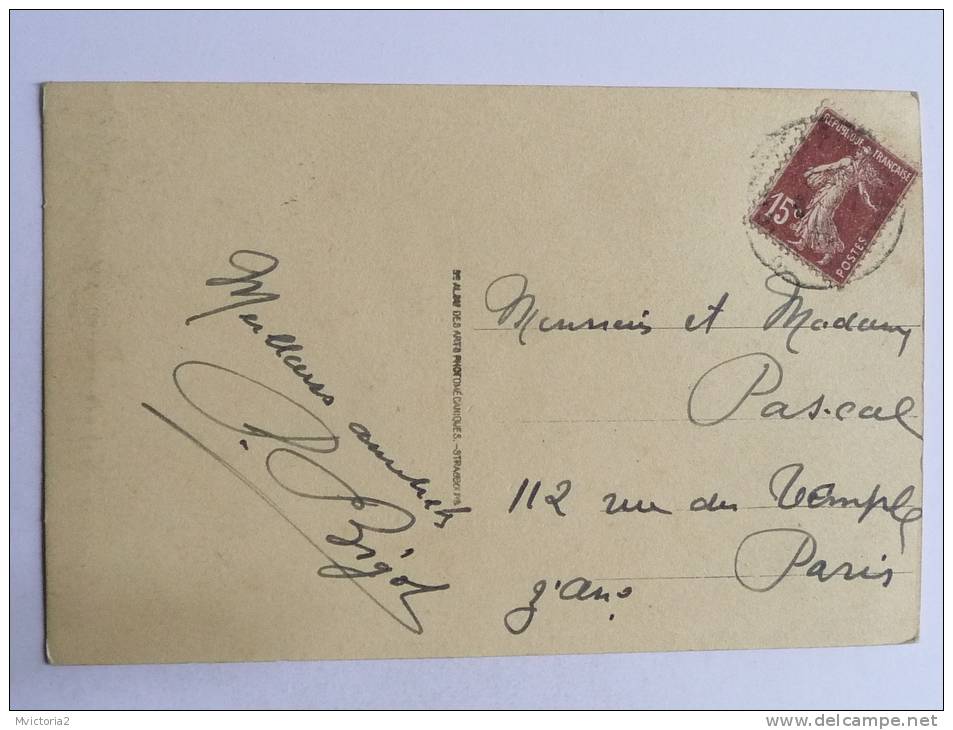 REPUBLIQUE FRANÇAISE
15c
POSTES
Meilleures amitiés
J. Bigot
Sté ALSNE DES ARTS PHOTOMÉCANIQUES. - STRASBOURG
Monsieur et Madame
Pascal
112 rue du Temple
Paris
3e Arro
Mvictoria2
www.delcampe.net